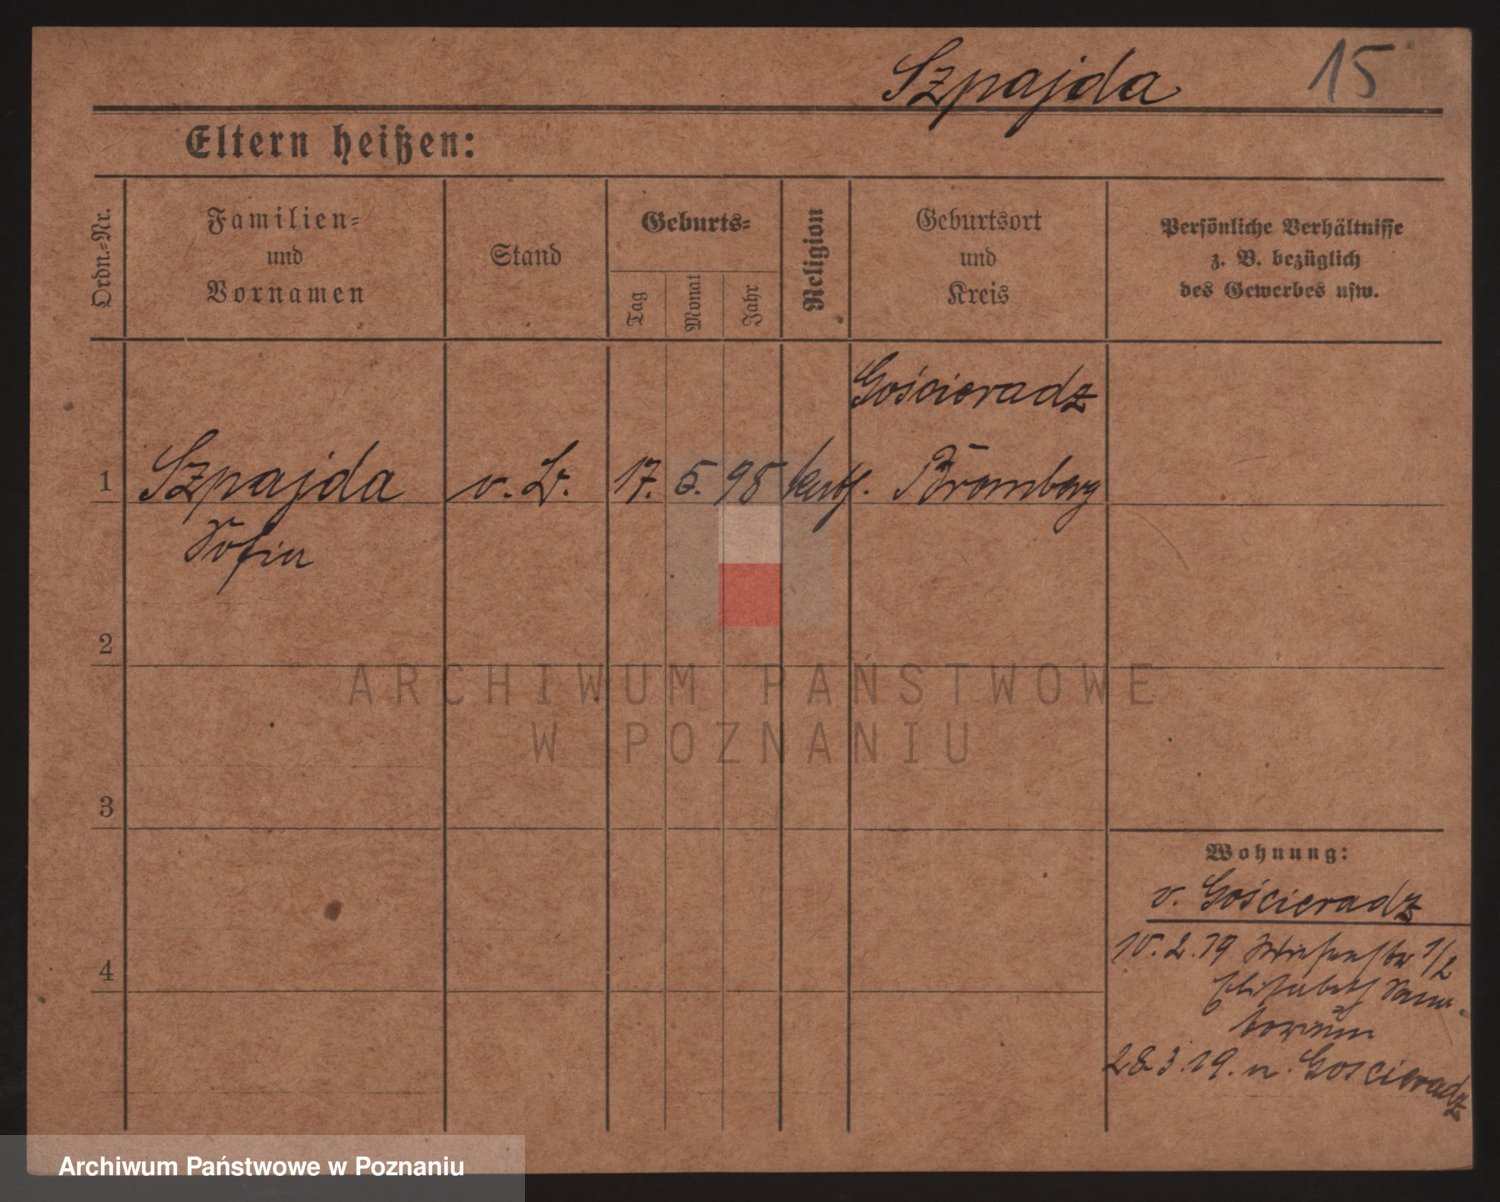 Szpajda 15
Eltern heißen:
Ordn.-Nr.
Familien-
und
Vornamen
Stand
Geburts-
Tag
Monat
Jahr
Religion
Geburtsort
und
Kreis
Persönliche Verhältnisse
z. B. bezüglich
des Gewerbes usw.
Gościeradz
1 Szpajda 17. 5. 98 kath. Bromberg
Sofia
2
ARCHIWUM PAŃSTWOWE
W POZNANIU
3
Wohnung:
v. Gościeradz
4
10.2.19 1/2
Elisabeth
28.3.19. n. Gościeradz
Archiwum Państwowe w Poznaniu